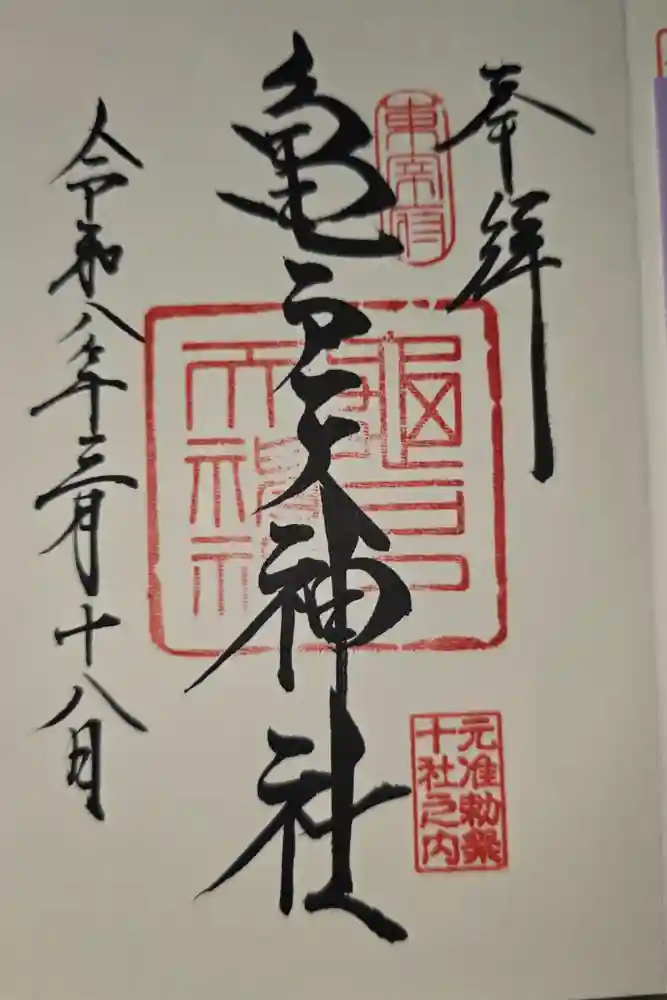 奉拝
東宰府
亀戸天神社
元准勅祭
十社之内
令和八年三月十八日